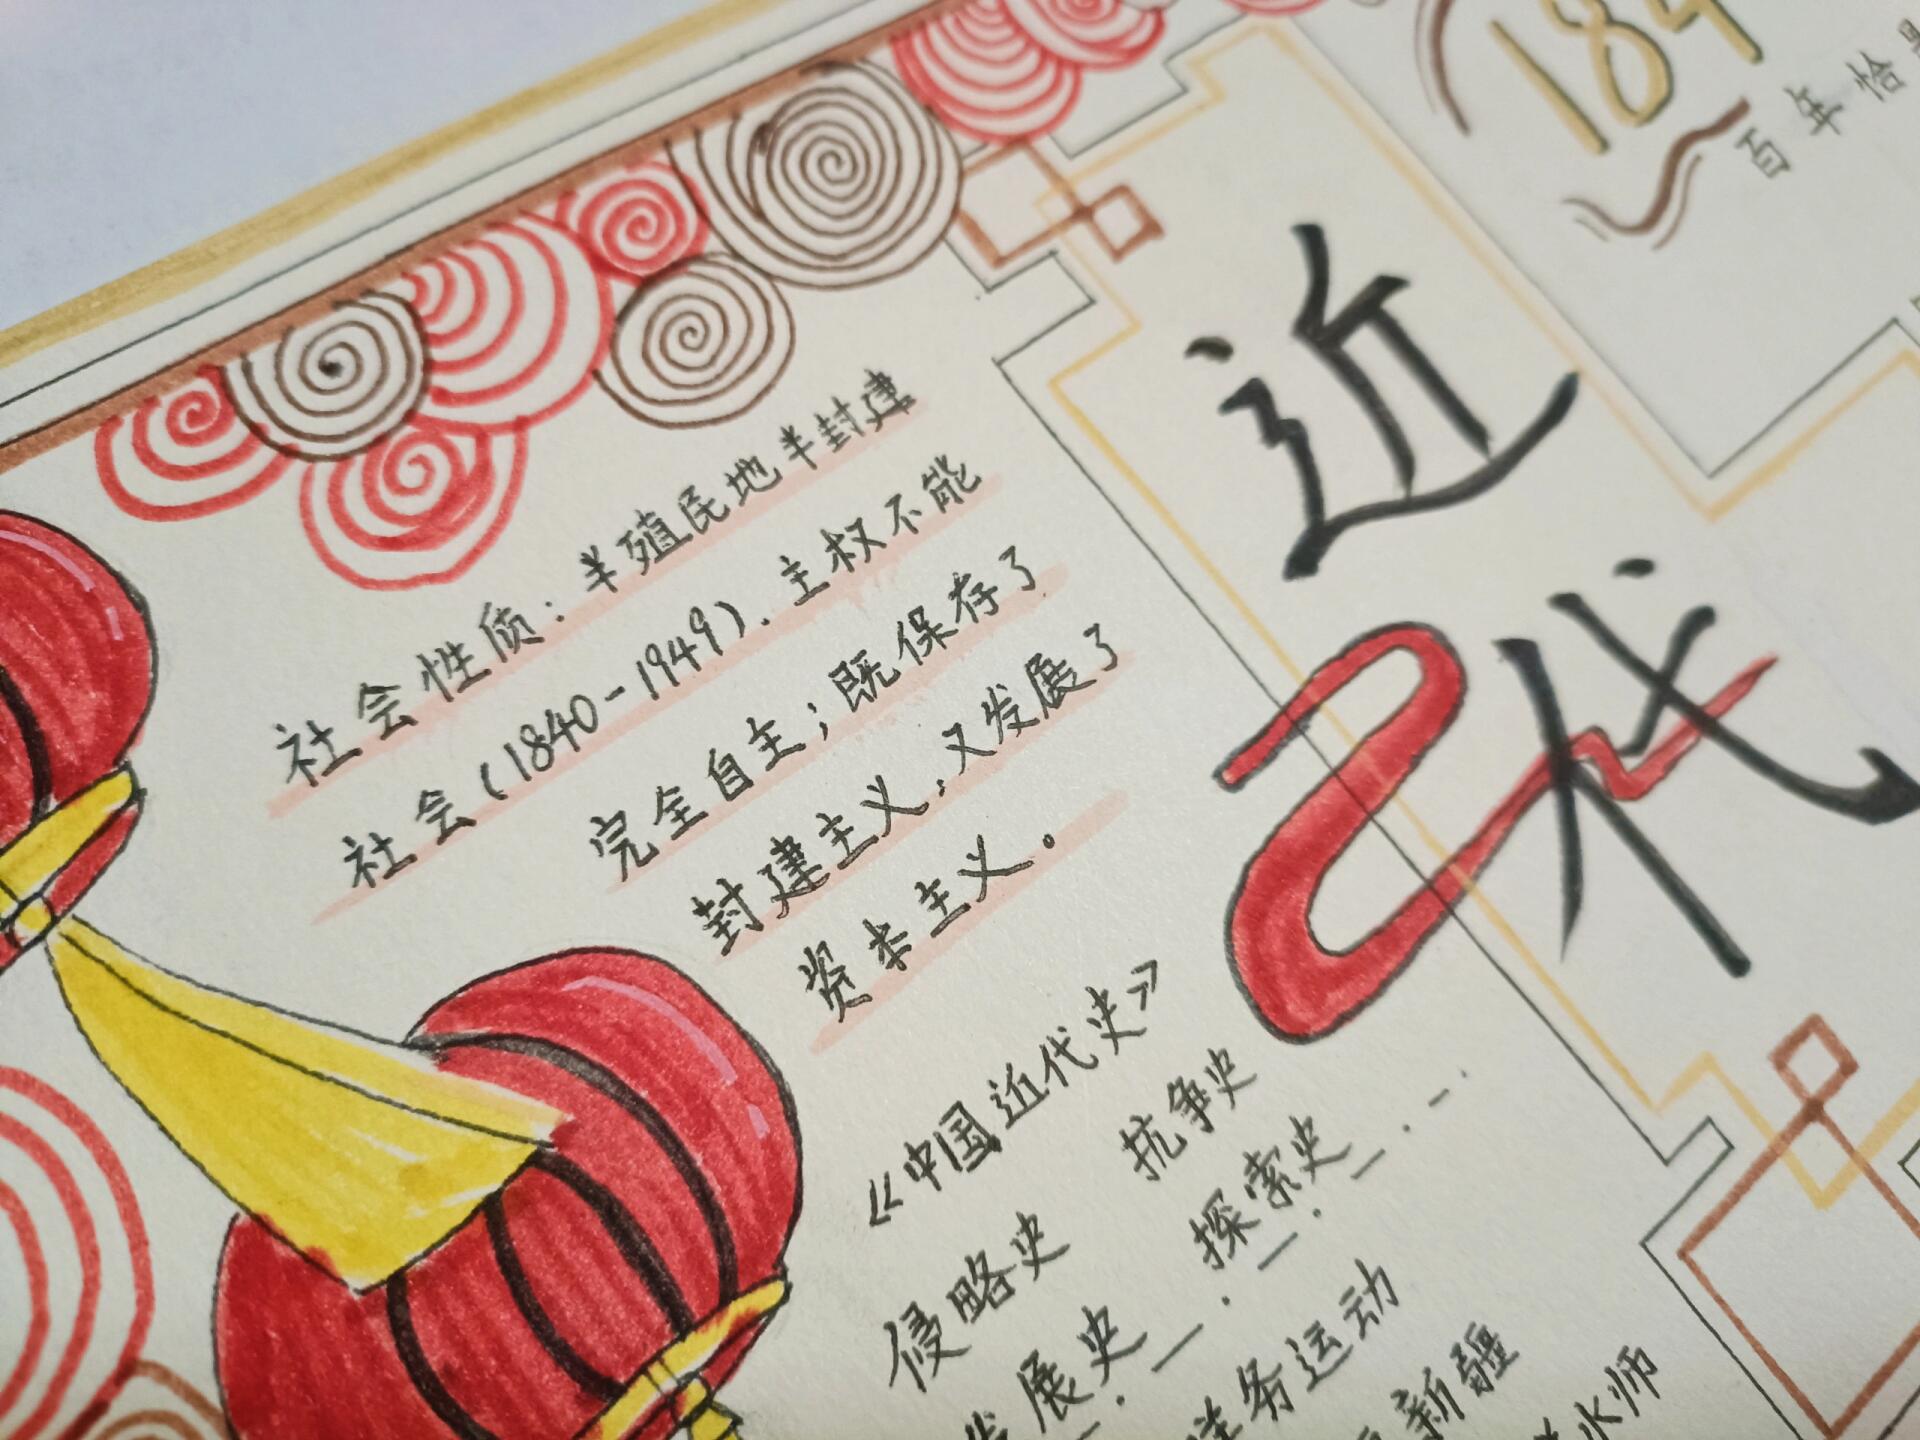 184
百年恰是
近代
社会性质：半殖民地半封建
社会(1840-1949). 主权不能
完全自主；既保存了
封建主义，又发展了
资本主义。
《中国近代史》
侵略史 抗争史
发展史 探索史
洋务运动
新疆
水师